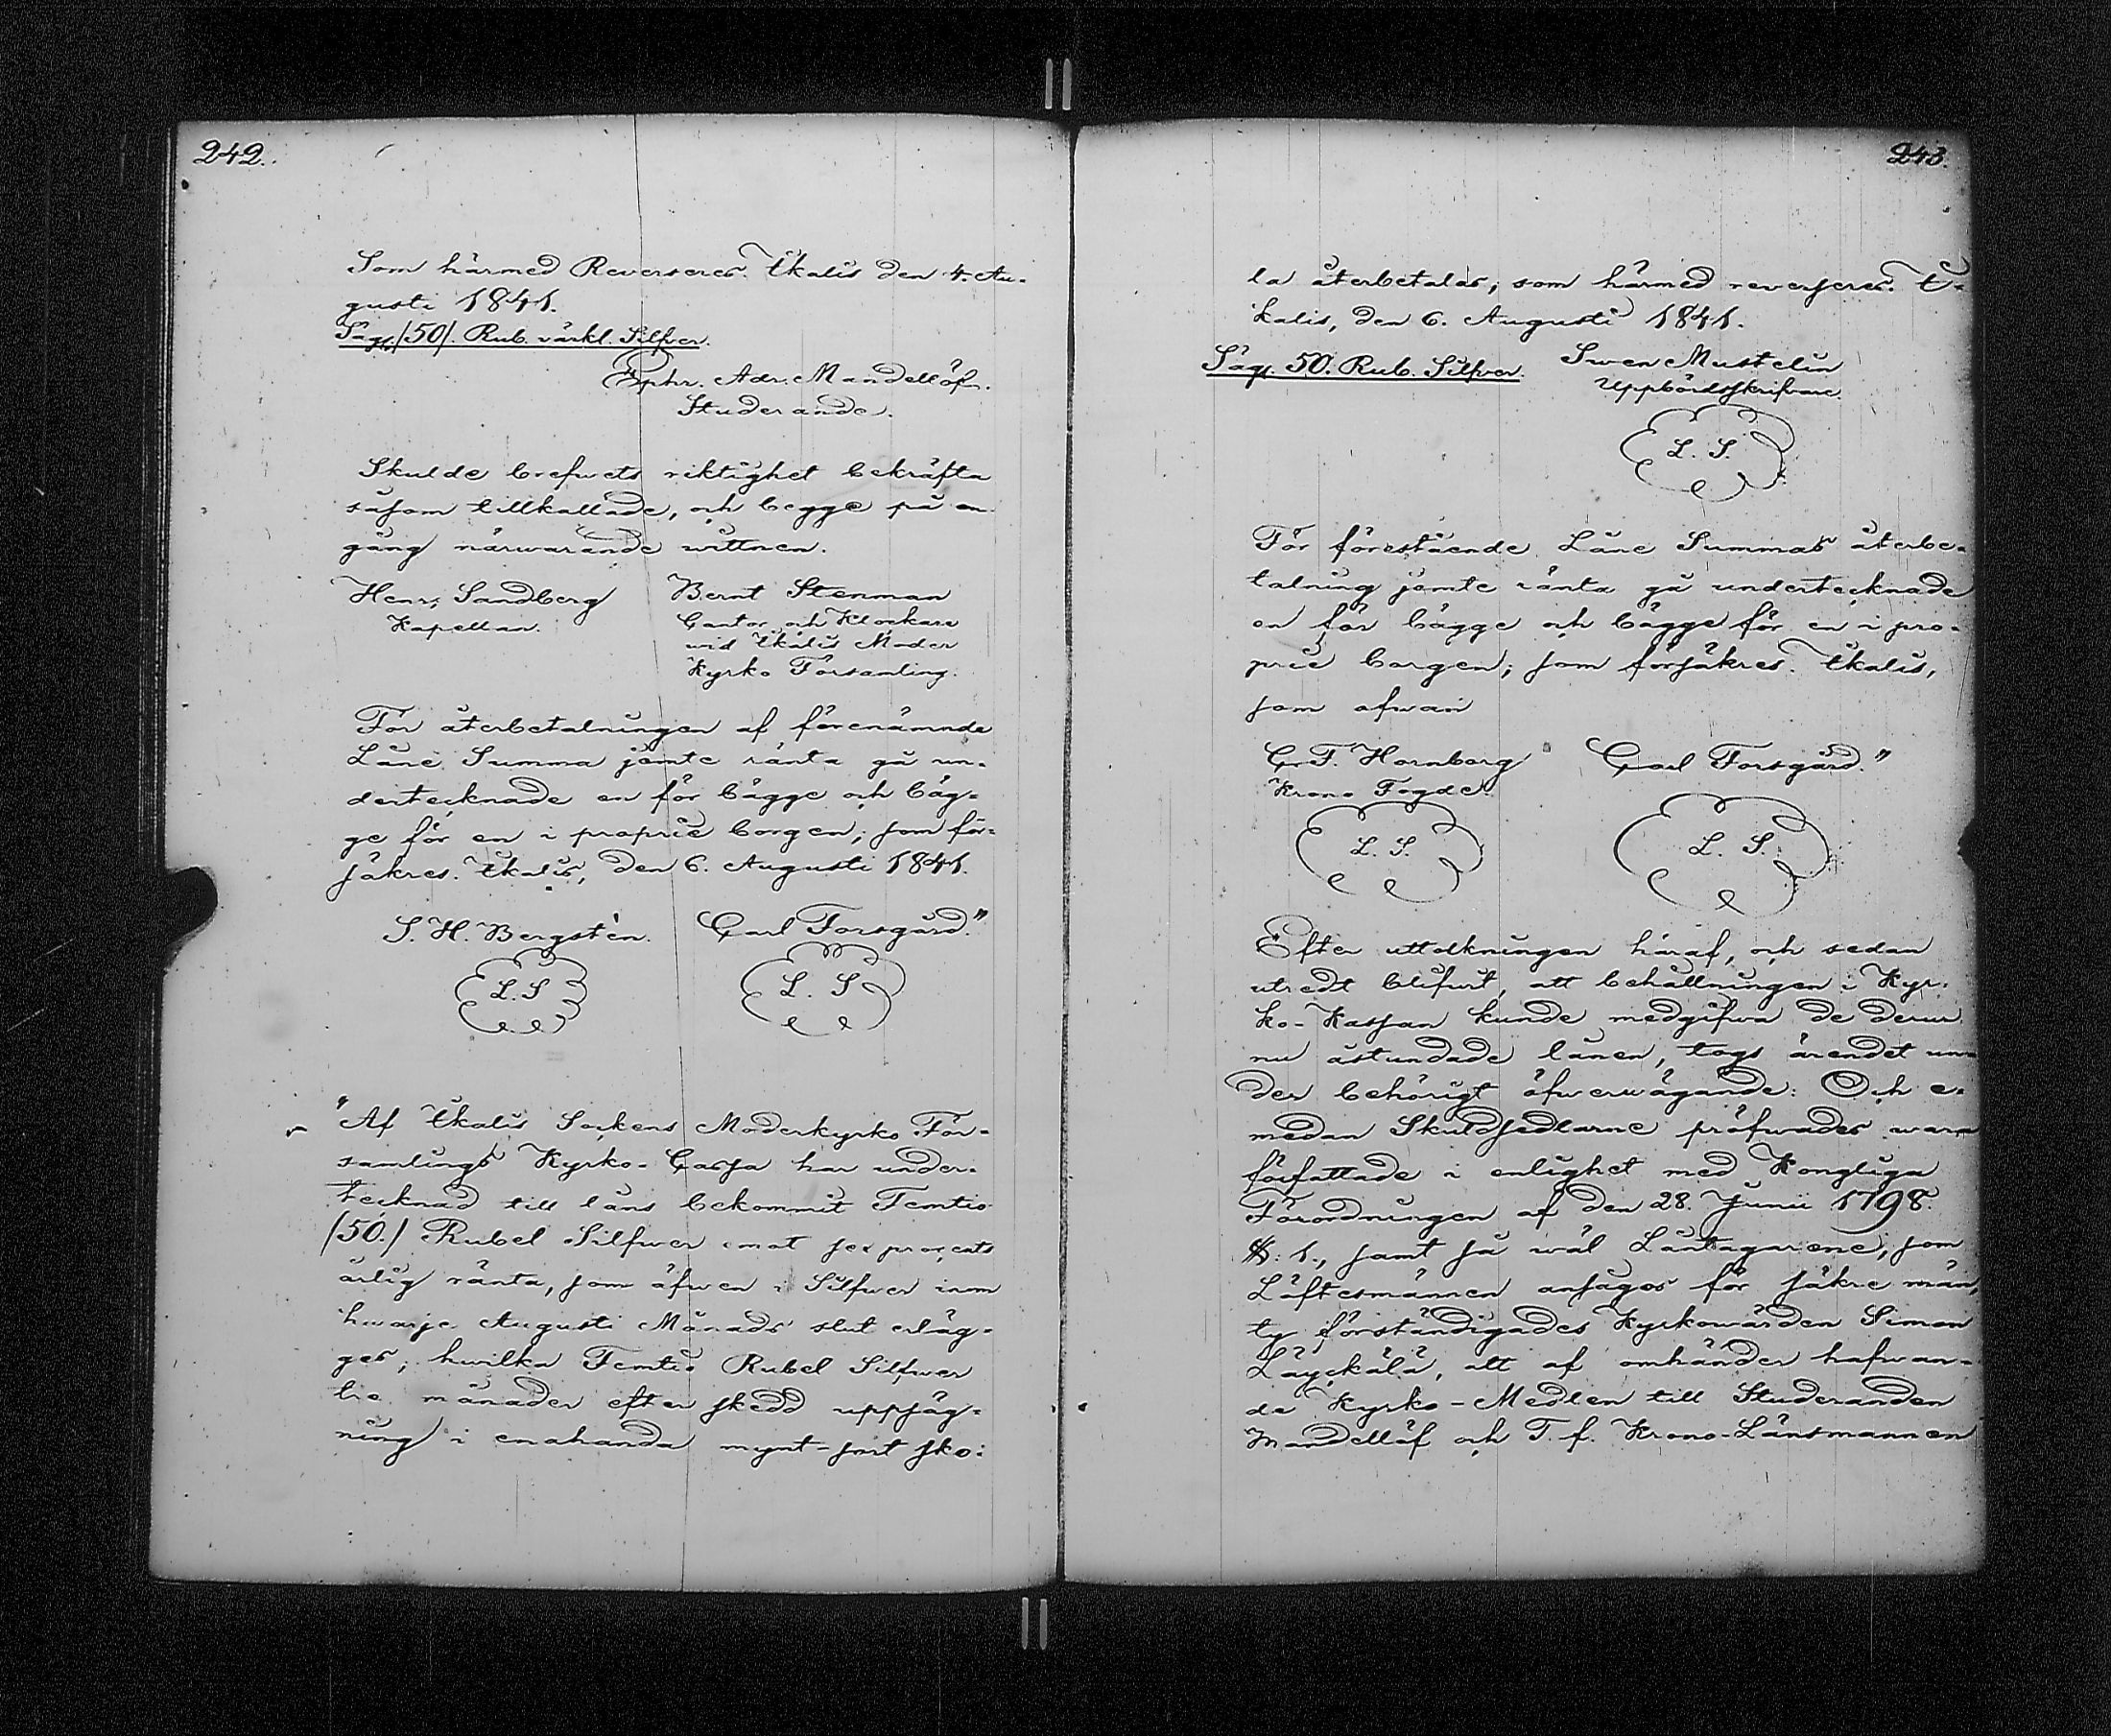 242.
Som härmed Reverseres. Ikalis den 4. Au-
gusti 1841.
Säg. /50/. Rub. värkl. Silfver.
Ephr. Adr. Mandellöf.
Studerande.
Skulde brefwets riktighet bekräfta
såsom tillkallade, och begge på en
gång närwarande wittnen.
Henr. Sandberg
Kapellan.
Bernt Stenman
Cantor och Klockare
wid Ikalis Moder
Kyrko Församling.
För återbetalningen af förenämnde
Låne Summa jemte ränta gå un-
dertecknade en för bägge och bäg-
ge för en i proprie borgen; som för-
säkres. Ikalis, den 6. Augusti 1841.
S. H. Bergstén.
Carl Forsgård."
L. S
L. S
"Af Ikalis Sockens Moderkyrko För-
samlings Kyrko-Cassa har under-
tecknad till låns bekommit Femtio
/50./ Rubel Silfwer emot sex procents
årlig ränta, som äfwen i Silfwer inom
hwarje Augusti Månads slut erläg-
ges; hwilka Femtio Rubel Silfwer
tre månader efter skedd uppsäg-
ning i enahanda mynt-sort sko:
243.
la återbetalas; som härmed reverseres. I-
kalis, den 6. Augusti 1841.
Säg. 50. Rub. Silfver.
Swen Mustelin
Uppbördsskrifvare.
L. S.
För förestående Låne Summas återbe-
talning jemte ränta gå undertecknade
en för bägge och bägge för en i pro-
prie borgen; som försäkres. Ikalis,
som ofwan
G. F. Hornborg
Krono Fogde.
Carl Forsgård."
L. S.
L. S.
Efter uttolkningen häraf, och sedan
utredt blifwit, att behållningen i Kyr-
ko-Kassan kunde medgifwa de derur
nu åstundade lånen, togs ärendet un-
der behörigt öfwerwägande: Och e-
medan Skuldsedlarne pröfwades wara
författade i enlighet med Kongliga
Förordningen af den 28. Junii 1798.
§: 1., samt så wäl Låntagarene, som
Löftesmännen ansågos för säkre män,
ty förständigades Kyrkowärden Simon
Läyckälä, att af omhänder hafwan-
de Kyrko-Medlen till Studeranden
Mandellöf och T. f. Krono-Länsmannen